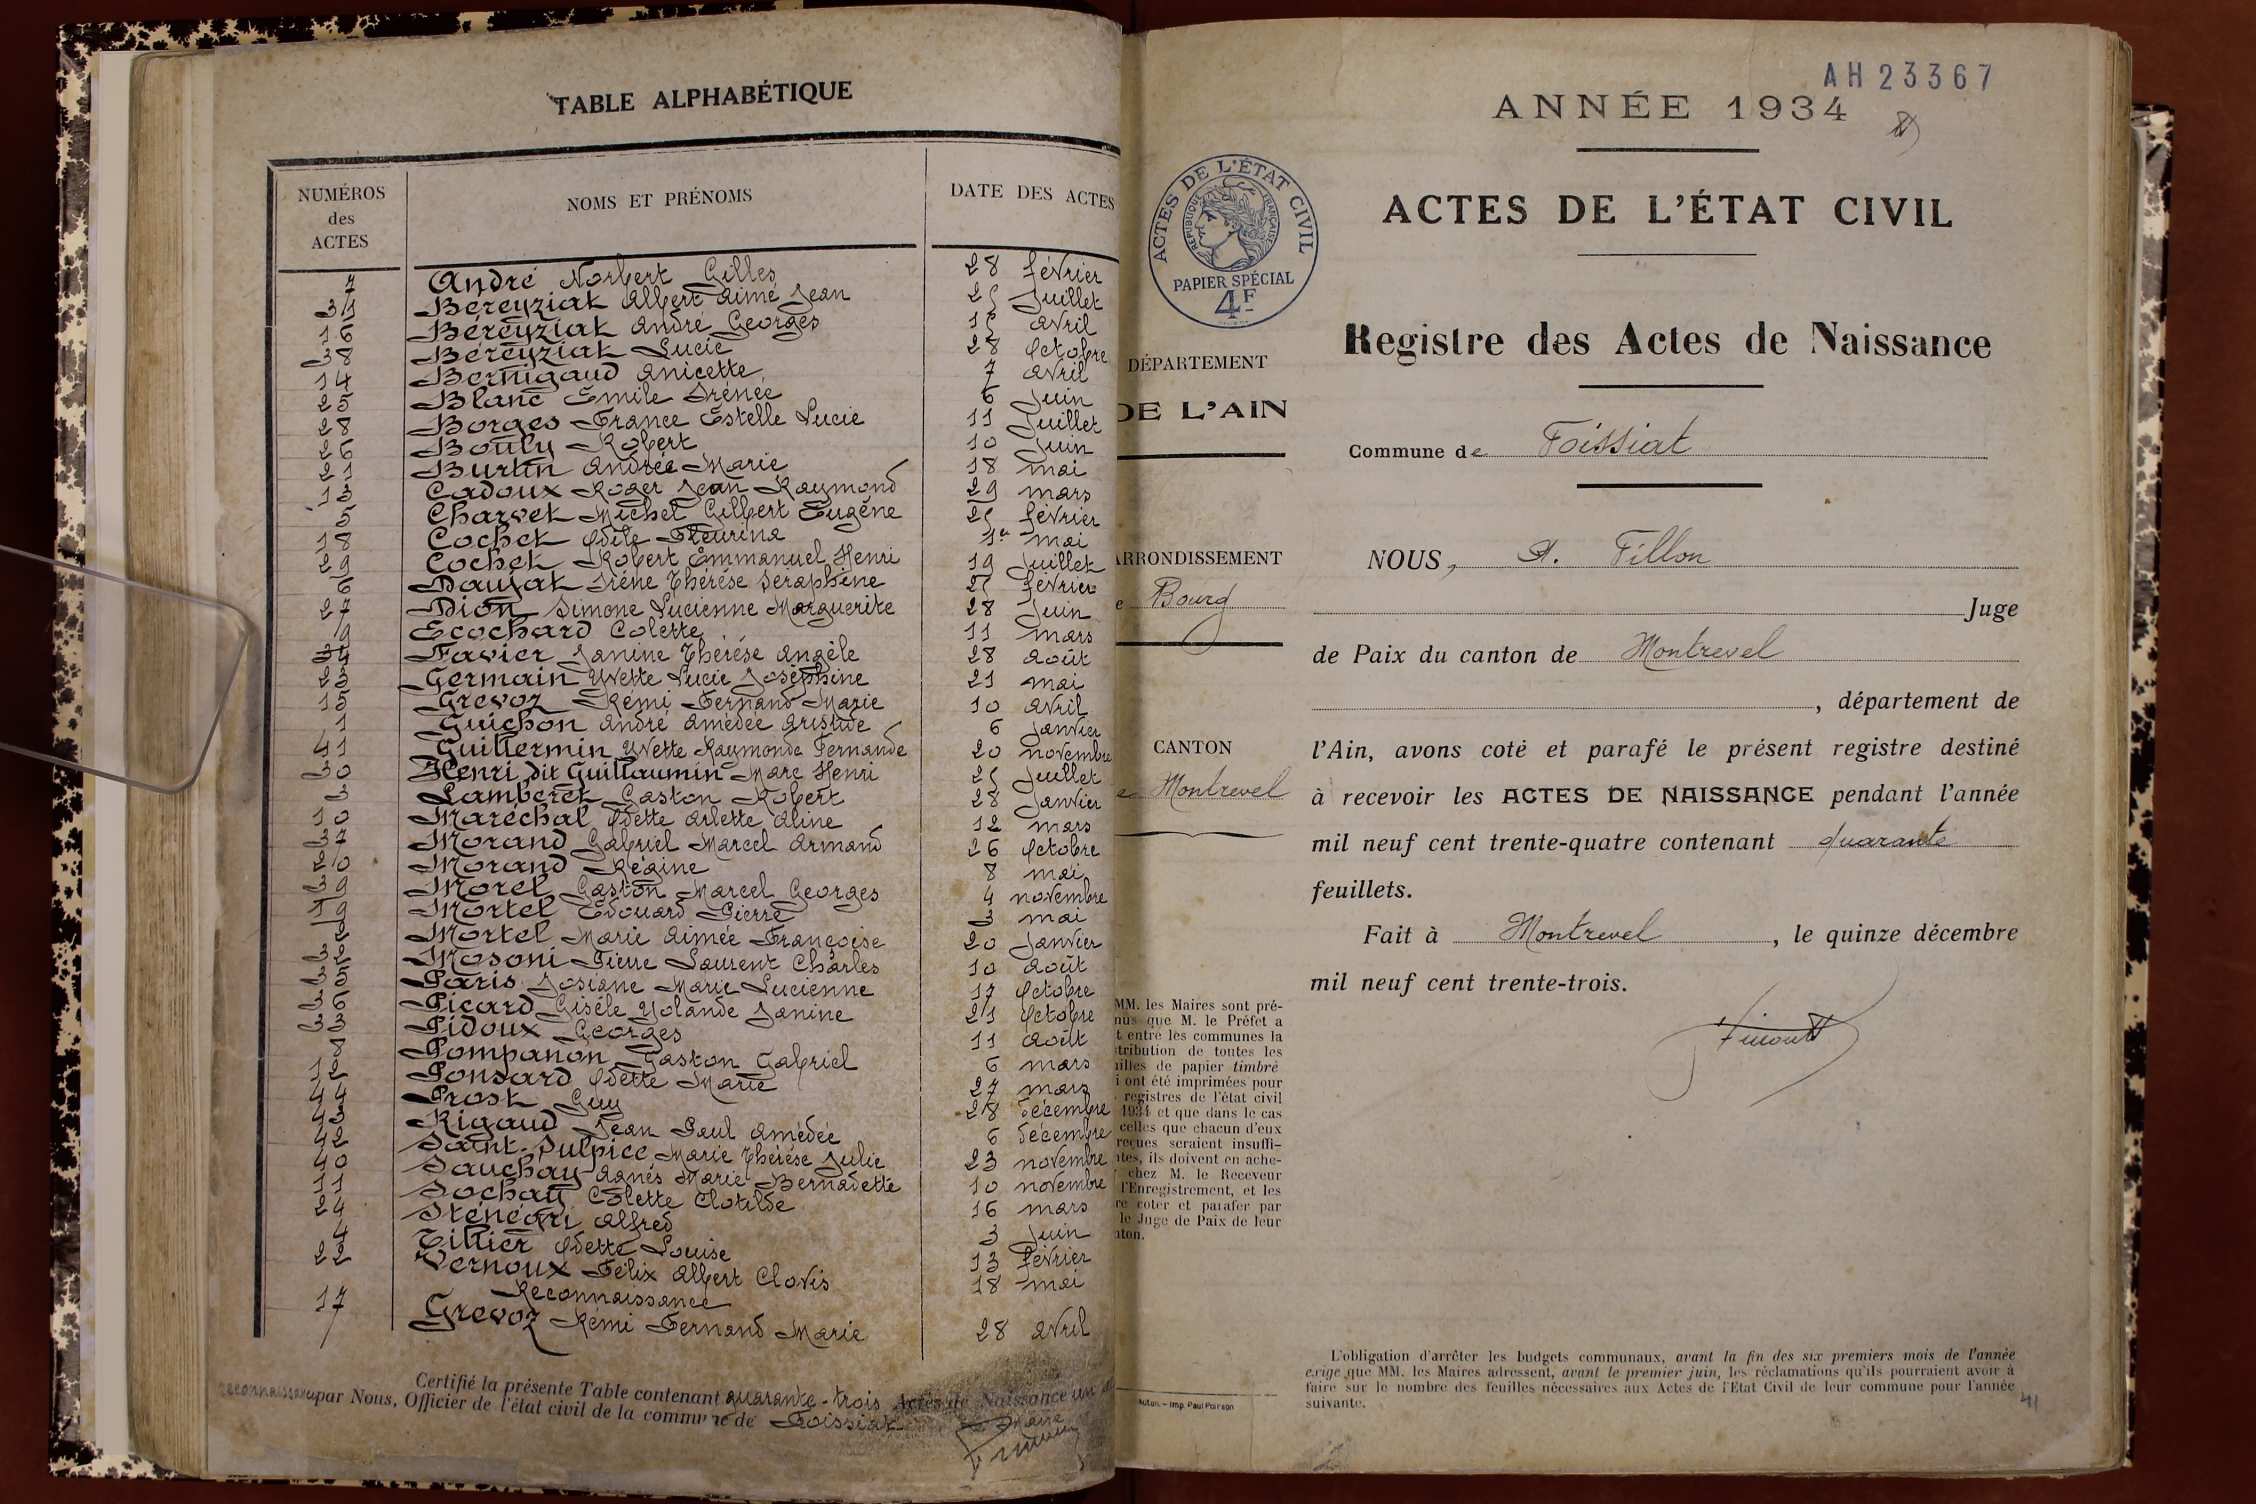 TABLE ALPHABÉTIQUE
NUMÉROS des ACTES
NOMS ET PRÉNOMS
DATE DES ACTES
7 André Norbert Gilles 28 février
31 Béreyziat Albert Aimé Jean 25 Juillet
16 Béreyziat André Georges 15 avril
38 Béreyziat Lucie 28 Octobre
14 Bernigaud Anicette 7 avril
25 Blanc Emile Irénée 6 Juin
28 Borges France Estelle Lucie 11 Juillet
26 Bouly Robert 10 Juin
21 Burtin Andrée Marie 18 mai
13 Cadoux Roger Jean Raymond 29 mars
5 Charvet Michel Gilbert Eugène 25 février
18 Cochet Odile Fleurina 1er mai
29 Cochet Robert Emmanuel Henri 19 Juillet
6 Daujat Irène Thérèse Séraphine 27 février
27 Dion Simone Lucienne Marguerite 28 Juin
9 Ecochard Colette 11 mars
34 Favier Janine Thérèse Angèle 28 août
23 Germain Yvette Lucie Joséphine 21 mai
15 Grevoz Rémi Fernand Marie 10 avril
1 Guichon André Amédée Aristide 6 Janvier
41 Guillermin Yvette Raymonde Fernande 20 novembre
30 Henri dit Guillaumin Marc Henri 25 Juillet
3 Lamberet Gaston Robert 28 Janvier
10 Maréchal Odette Arlette Aline 12 mars
37 Morand Gabriel Marcel Armand 26 Octobre
20 Morand Régine 8 mai
39 Morel Gaston Marcel Georges 4 novembre
19 Mortel Edouard Pierre 3 mai
2 Mortel Marie Aimée Françoise 20 Janvier
32 Mosoni Pierre Laurent Charles 10 août
35 Paris Josiane Marie Lucienne 17 Octobre
36 Picard Gisèle Yolande Janine 21 Octobre
33 Pidoux Georges 11 août
8 Pompanon Gaston Gabriel 6 mars
12 Ponsard Odette Marie 27 mars
44 Prost Guy 28 décembre
43 Rigaud Jean Paul Amédée 6 décembre
42 Saint-Sulpice Marie Thérèse Julie 23 novembre
40 Sauchay Agnès Marie Bernadette 10 novembre
11 Sochay Colette Clotilde 16 mars
24 Alfred 3 Juin
4 Tillier Odette Louise 13 février
22 Vernoux Félix Albert Clovis 18 mai
Reconnaissance
17 Grevoz Rémi Fernand Marie 28 avril
Certifié la présente Table contenant quarante-trois Actes de Naissance un
reconnaissance par Nous, Officier de l'état civil de la commune de Foissiat
AH 23367
ANNÉE 1934
ACTES DE L'ÉTAT CIVIL
RÉPUBLIQUE FRANÇAISE
PAPIER SPÉCIAL
4F
ACTES DE L'ÉTAT CIVIL
Registre des Actes de Naissance
DÉPARTEMENT
DE L'AIN
ARRONDISSEMENT
Bourg
CANTON
Montrevel
Commune de Foissiat
NOUS, A. Fillon
Juge
de Paix du canton de Montrevel
, département de
l'Ain, avons coté et parafé le présent registre destiné
à recevoir les ACTES DE NAISSANCE pendant l'année
mil neuf cent trente-quatre contenant quarante
feuillets.
Fait à Montrevel, le quinze décembre
mil neuf cent trente-trois.
MM. les Maires sont pré-
nus que M. le Préfet a
t entre les communes la
tribution de toutes les
uilles de papier timbré
i ont été imprimées pour
registres de l'état civil
1934 et que dans le cas
celles que chacun d'eux
reçues seraient insuffi-
ntes, ils doivent en ache-
chez M. le Receveur
l'Enregistrement, et les
re coter et parafer par
le Juge de Paix de leur
nton.
Autun. - Imp. Paul Poirson
L'obligation d'arrêter les budgets communaux, avant la fin des six premiers mois de l'année
exige que MM. les Maires adressent, avant le premier juin, les réclamations qu'ils pourraient avoir à
faire sur le nombre des feuilles nécessaires aux Actes de l'Etat Civil de leur commune pour l'année
suivante.
41